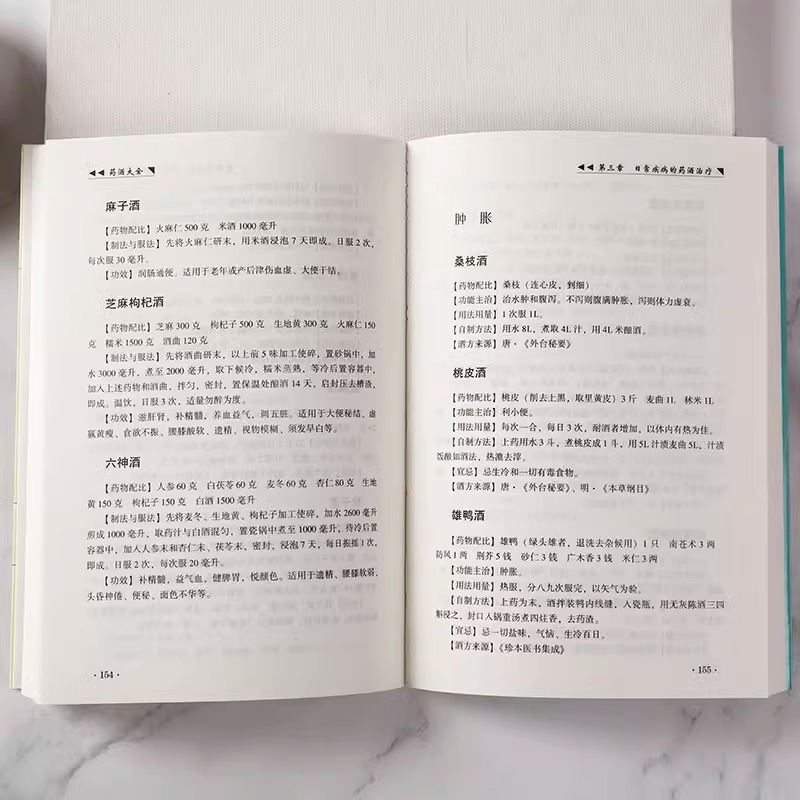 药酒大全
麻子酒
【药物配比】火麻仁 500 克 米酒 1000 毫升
【制法与服法】先将火麻仁研末，用米酒浸泡 7 天即成。日服 2 次，
每次服 30 毫升。
【功效】润肠通便。适用于老年或产后津伤血虚、大便干结。
芝麻枸杞酒
【药物配比】芝麻 300 克 枸杞子 500 克 生地黄 300 克 火麻仁 150
克 糯米 1500 克 酒曲 120 克
【制法与服法】先将酒曲研末，以上前 5 味加工使碎，置砂锅中，加
水 3000 毫升，煮至 2000 毫升，取下候冷，糯米蒸熟，等冷后置容器中，
加入上述药物和酒曲，拌匀，密封，置保温处酿酒 14 天，启封压去糟渣，
即成。温饮，日服 3 次，适量勿醉为度。
【功效】滋肝肾，补精髓，养血益气，调五脏。适用于大便秘结、虚
羸黄瘦、食欲不振、腰膝酸软、遗精、视物模糊、须发早白等。
六神酒
【药物配比】人参 60 克 白茯苓 60 克 麦冬 60 克 杏仁 80 克 生地
黄 150 克 枸杞子 150 克 白酒 1500 毫升
【制法与服法】先将麦冬、生地黄、枸杞子加工使碎，加水 2600 毫升
煎成 1000 毫升，取药汁与白酒混匀，置瓷锅中煮至 1000 毫升，待冷后置
容器中，加入人参末和杏仁末、茯苓末，密封，浸泡 7 天，每日振摇 1 次，
即成。日服 2 次，每次服 20 毫升。
【功效】补精髓，益气血，健脾胃，悦颜色。适用于遗精、腰膝软弱、
头昏神倦、便秘、面色不华等。
· 154 ·
第三章 日常疾病的药酒治疗
肿胀
桑枝酒
【药物配比】桑枝（连心皮，到细）
【功能主治】治水肿和腹泻。不泻则腹满肿胀，泻则体力虚衰。
【用法用量】1 次服 1L。
【自制方法】用水 8L，煮取 4L 汁，用 4L 米酿酒。
【酒方来源】唐·《外台秘要》
桃皮酒
【药物配比】桃皮（削去上黑，取里黄皮）3 斤 麦曲 1L 秫米 1L
【功能主治】利小便。
【用法用量】每次一合，每日 3 次，耐酒者增加，以体内有热为佳。
【自制方法】上药用水 3 斗，煮桃皮成 1 斗，用 5L 汁渍麦曲 5L，汁渍
饭酿如酒法，热漉去滓。
【宜忌】忌生冷和一切有毒食物。
【酒方来源】唐·《外台秘要》、明·《本草纲目》
雄鸭酒
【药物配比】雄鸭（绿头雄者，退洗去杂候用）1 只 南苍术 3 两
防风 1 两 荆芥 5 钱 砂仁 3 钱 广木香 3 钱 米仁 3 两
【功能主治】肿胀。
【用法用量】热服，分八九次服完，以矢气为验。
【自制方法】上药为末，酒拌装鸭内线缝，入瓷瓶，用无灰陈酒三四
斛浸之，封口入锅重汤煮四炷香，去药渣。
【宜忌】忌一切盐味，气恼、生冷百日。
【酒方来源】《珍本医书集成》
· 155 ·